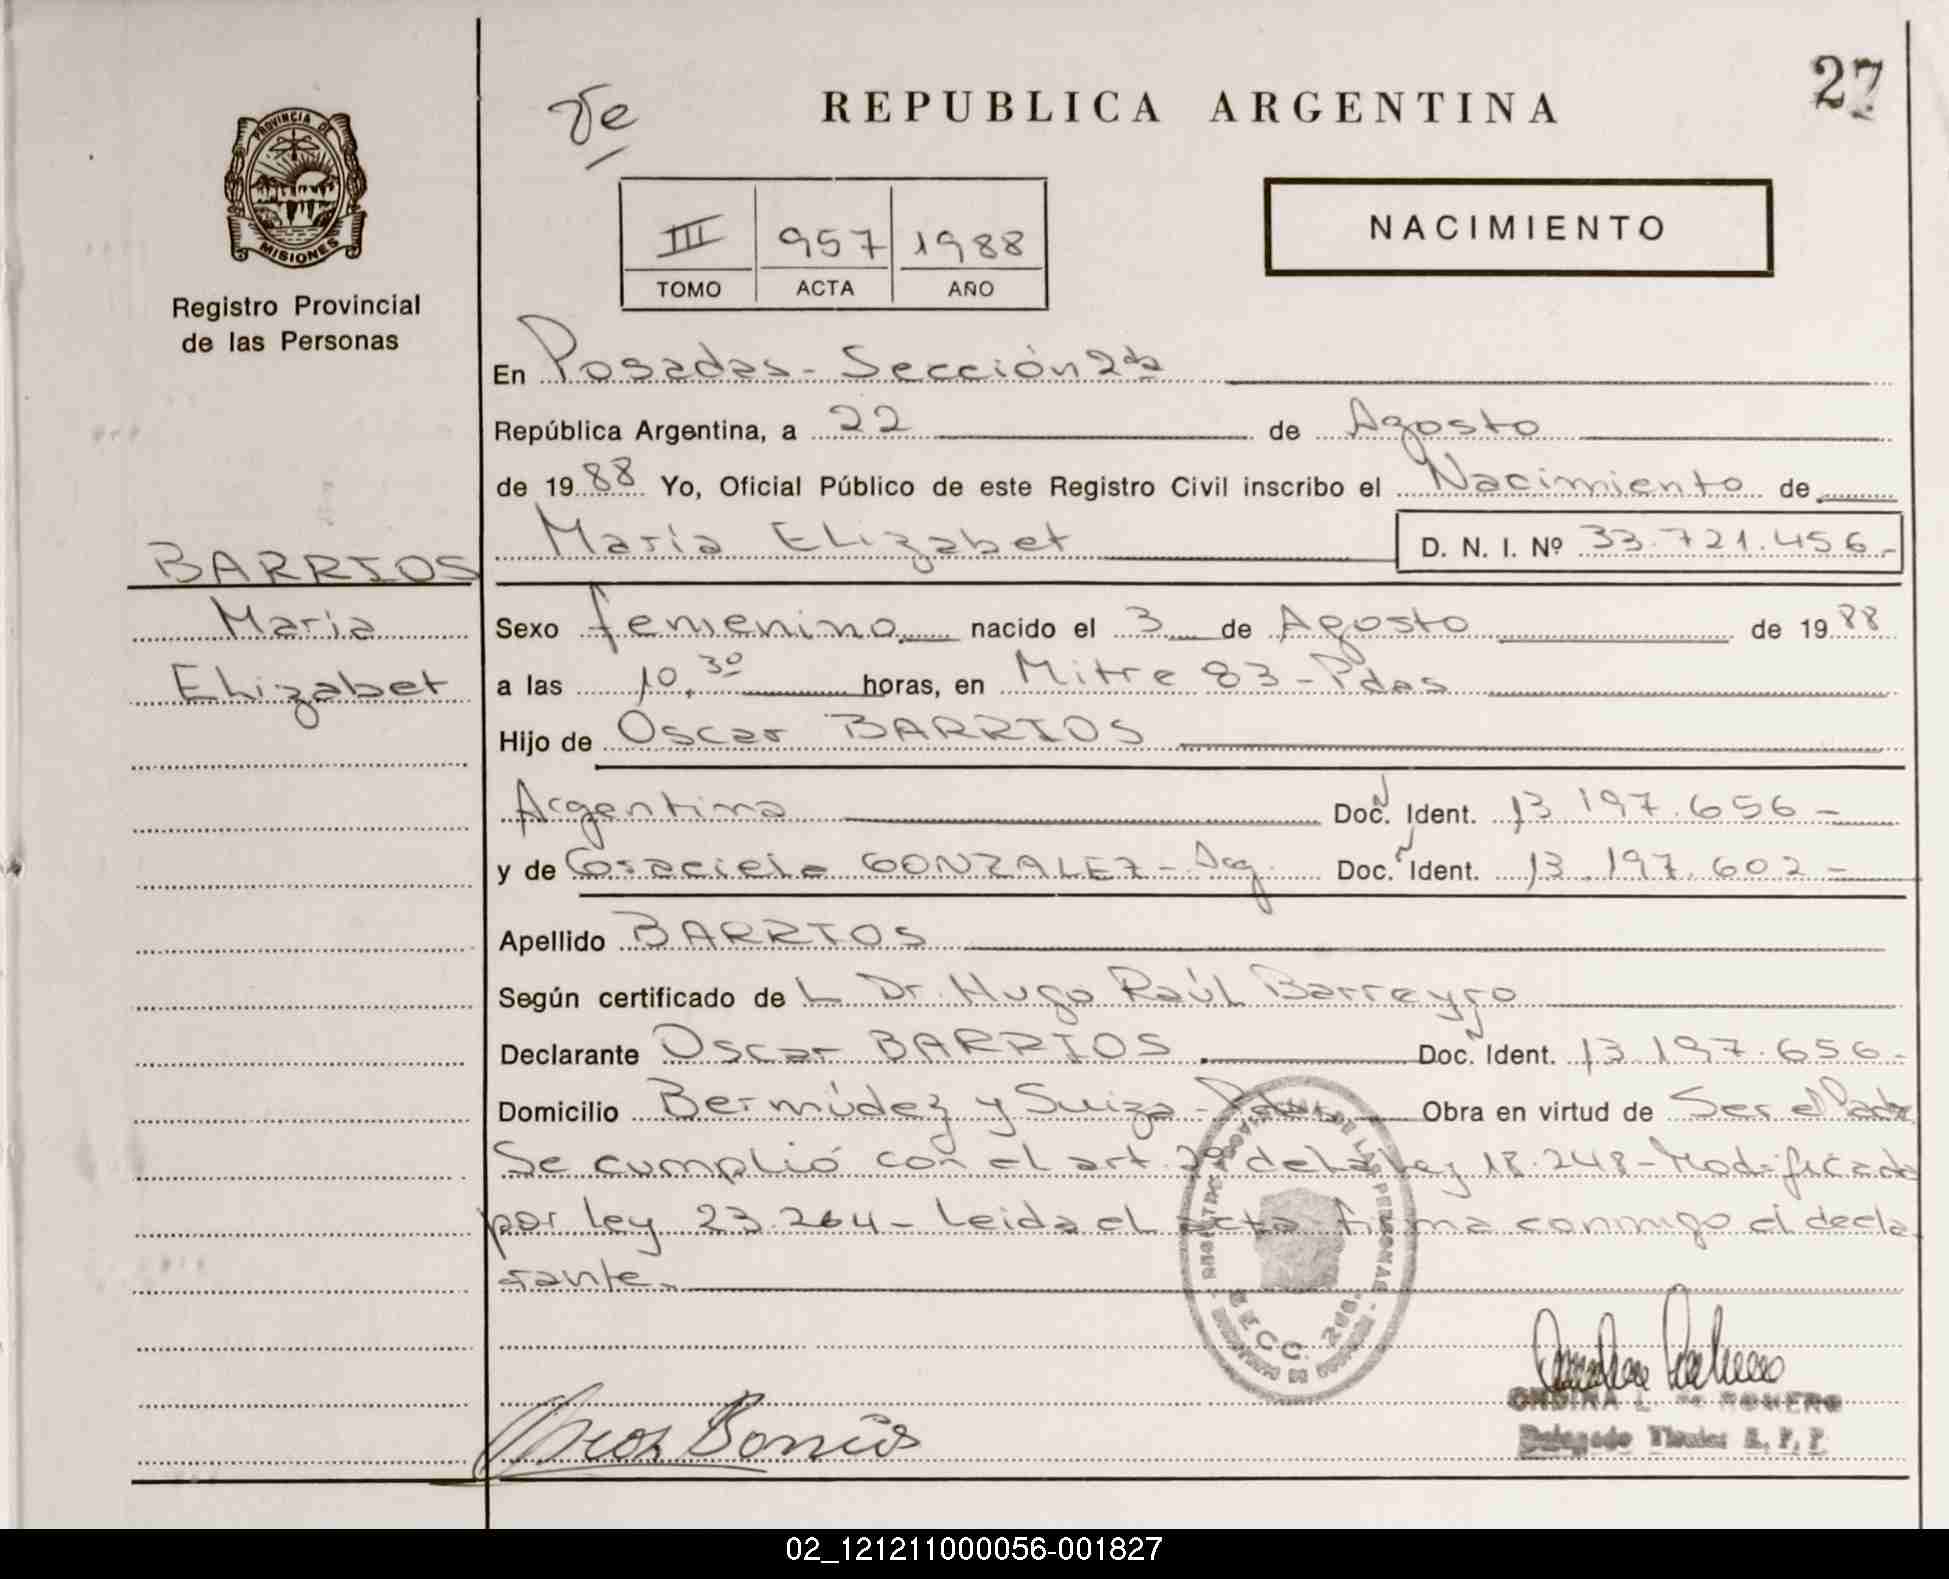 27
Ve
REPUBLICA ARGENTINA
PROVINCIA DE
MISIONES
Registro Provincial
de las Personas
III 957 1988
TOMO ACTA AÑO
NACIMIENTO
BARRIOS
Maria
Elizabet
En Posadas - Sección 2da
República Argentina, a 22 de Agosto
de 1988 Yo, Oficial Público de este Registro Civil inscribo el Nacimiento de
María Elizabet D. N. I. Nº 33.721.456.-
Sexo femenino nacido el 3 de Agosto de 1988
a las 10,30 horas, en Mitre 83 - Pdas
Hijo de Oscar BARRIOS
Argentina Doc. Ident. 13.197.656 -
y de Graciela GONZALEZ - Arg. Doc. Ident. 13.197.602 -
Apellido BARRIOS
Según certificado de L Dr. Hugo Raúl Barreyro
Declarante Oscar BARRIOS Doc. Ident. 13.197.656 -
Domicilio Bermúdez y Suiza - Pdas Obra en virtud de Ser el Padre
Se cumplió con el art. 2º de la Ley 18.248 - Modificada
por ley 23.264 - Leida el acta firma conmigo el decla
rante.
DE LAS PERSONAS
SECC. 2da.
Oscar Barrios
ONDINA L. de ROMERO
Delegado Titular R. P. P.
02_121211000056-001827